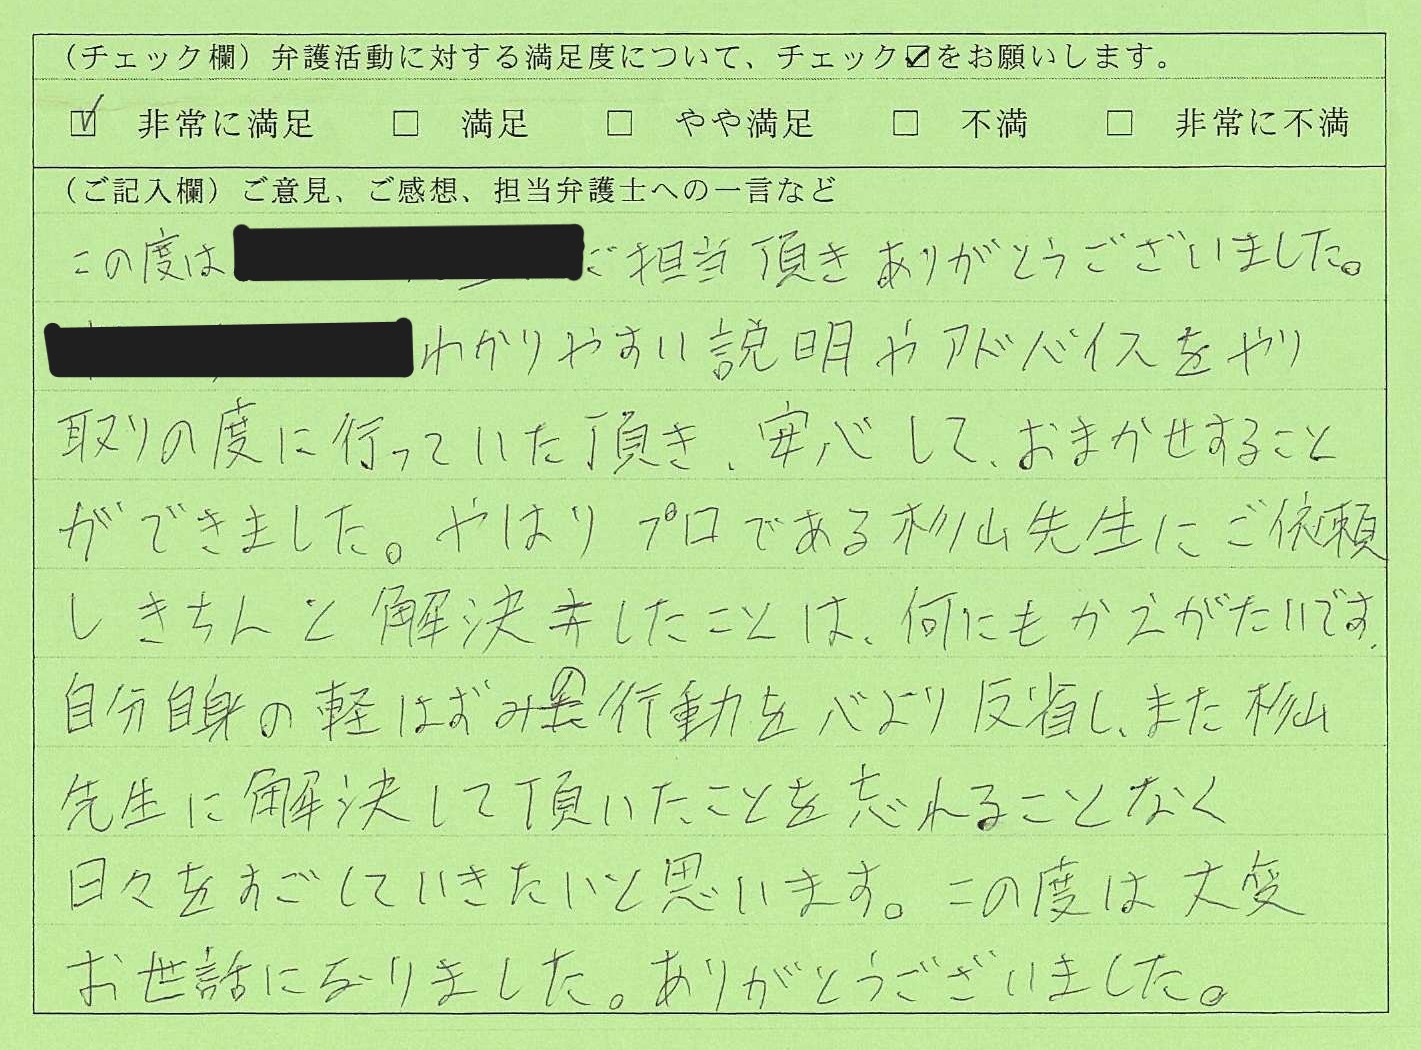 （チェック欄）弁護活動に対する満足度について、チェック☑をお願いします。
☑ 非常に満足 □ 満足 □ やや満足 □ 不満 □ 非常に不満
（ご記入欄）ご意見、ご感想、担当弁護士への一言など
この度は ご担当頂きありがとうございました。
わかりやすい説明やアドバイスをやり
取りの度に行っていた頂き、安心して、おまかせすること
ができました。やはりプロである杉山先生にご依頼
しきちんと解決したことは、何にもかえがたいです。
自分自身の軽はずみの行動を心より反省し、また杉山
先生に解決して頂いたことを忘れることなく
日々をすごしていきたいと思います。この度は大変
お世話になりました。ありがとうございました。